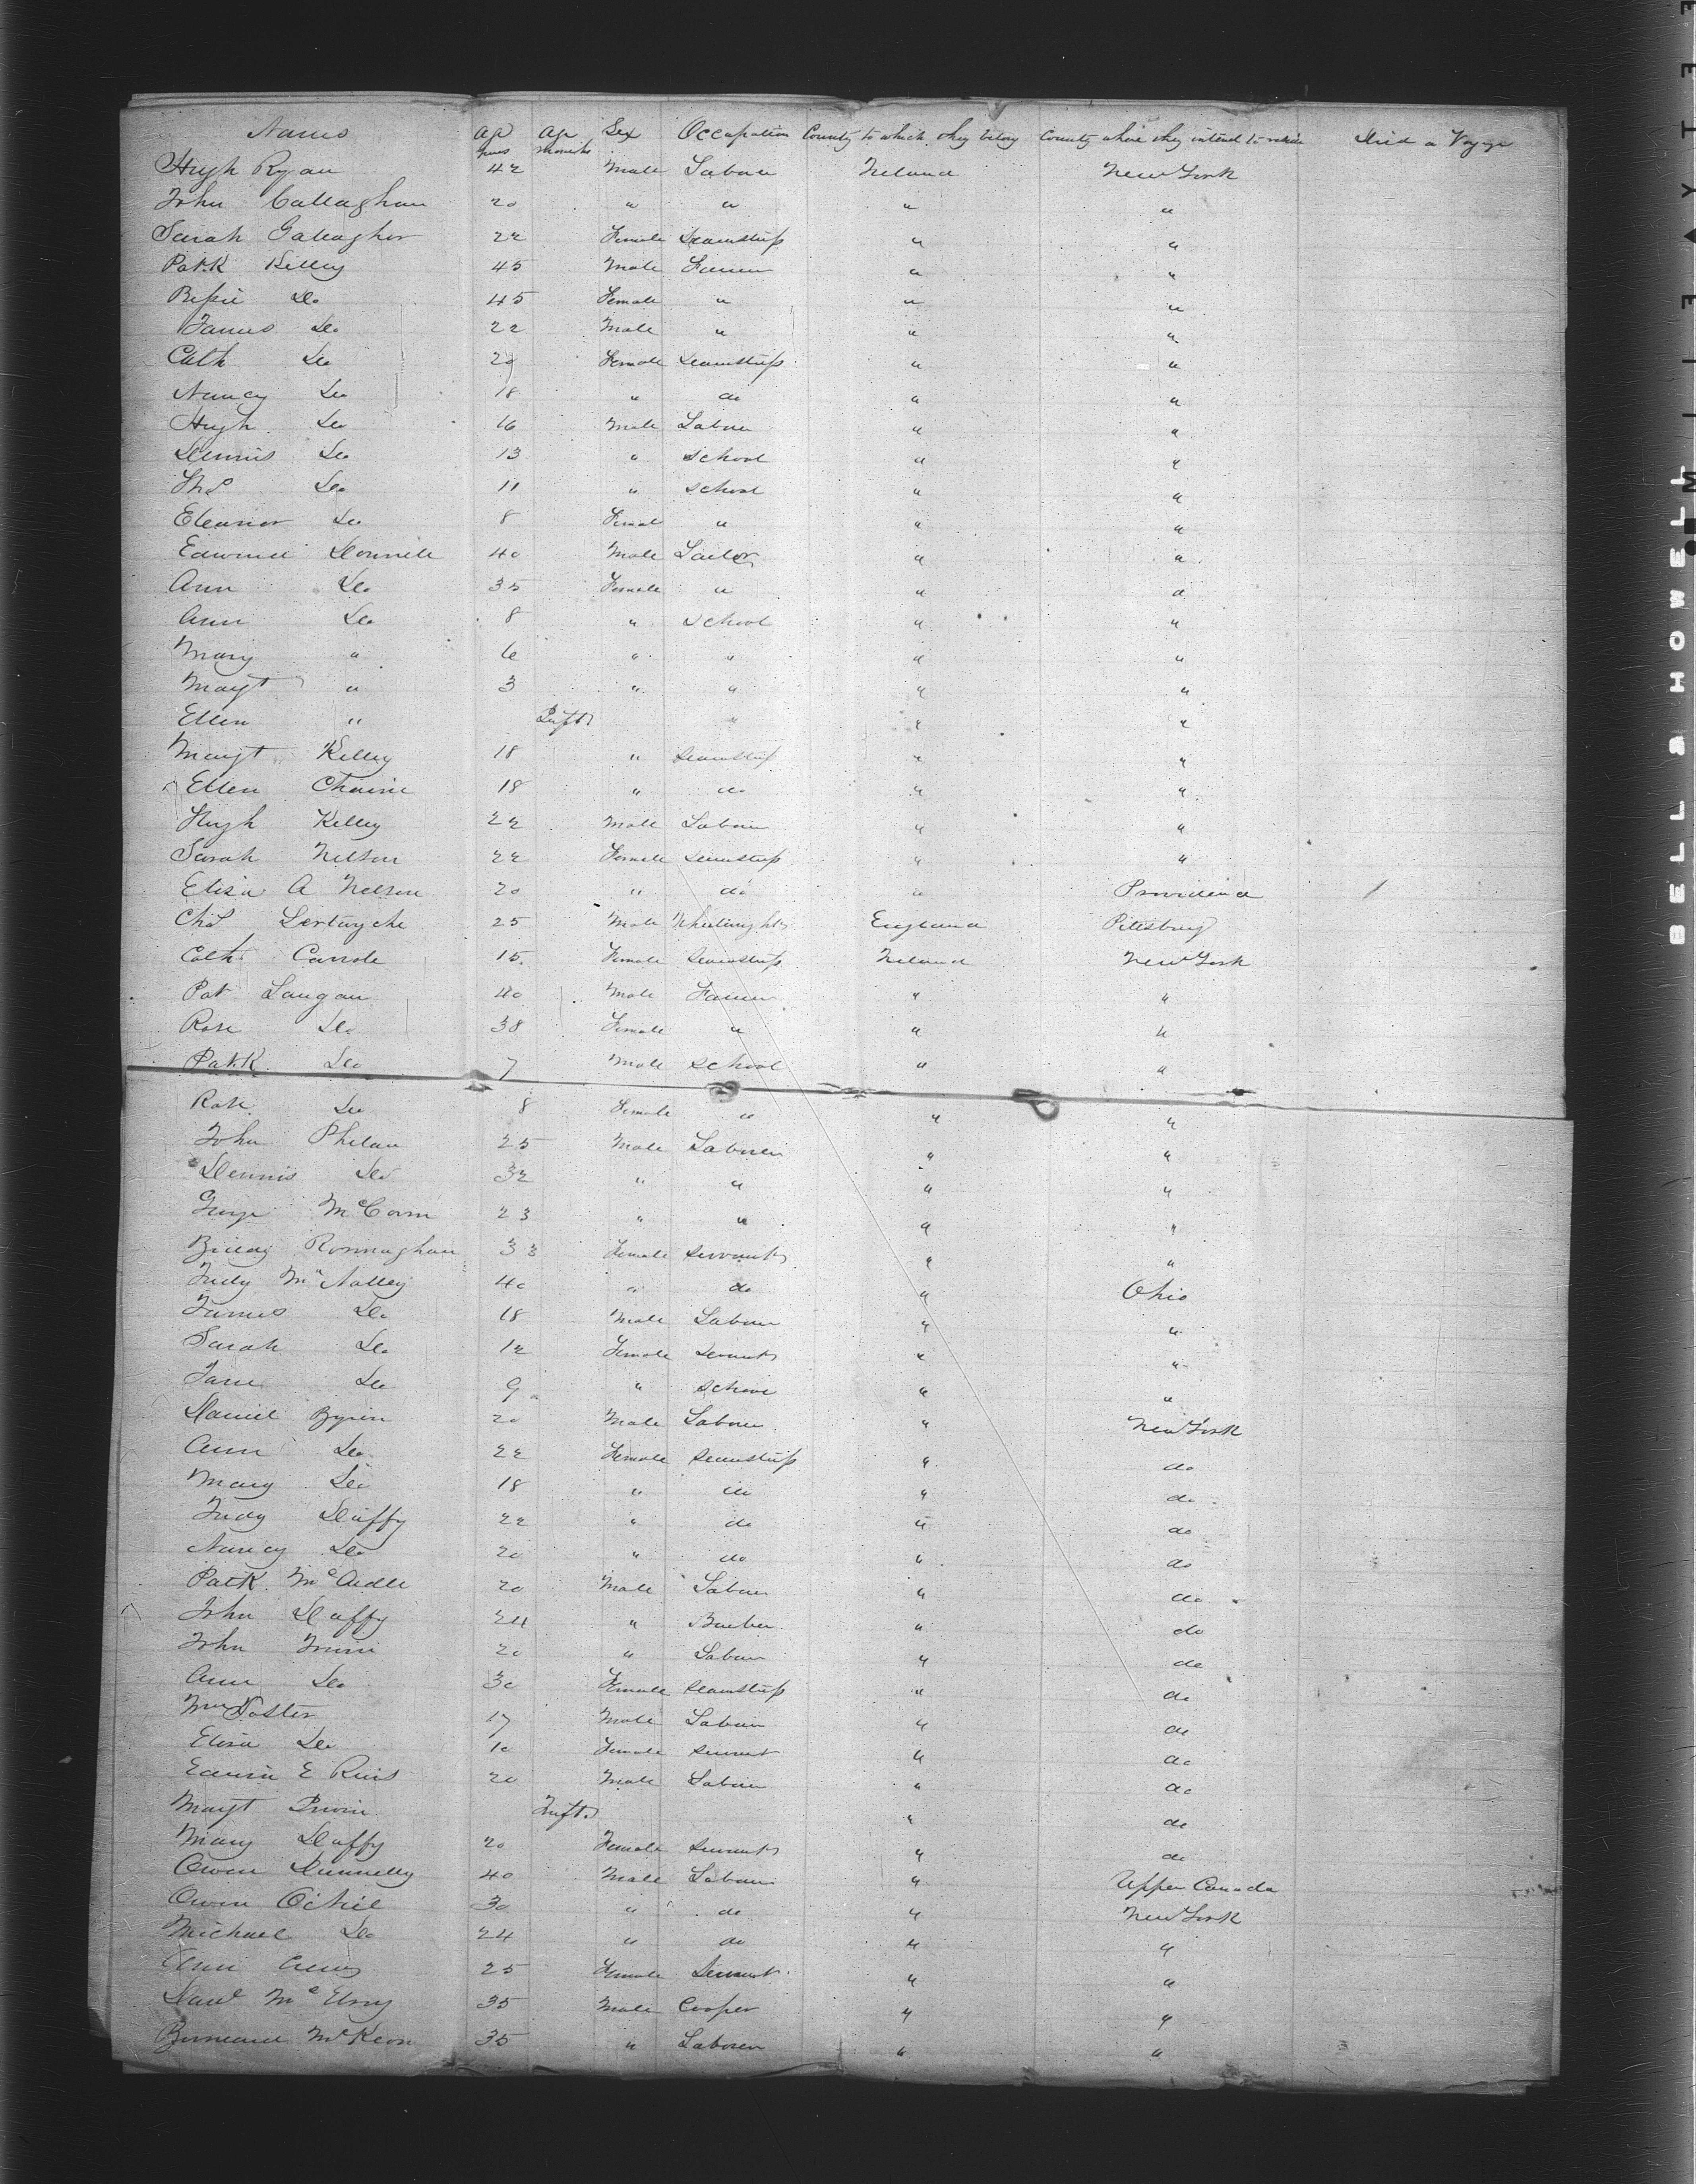 Names Age years Age Months Sex Occupation Country to which they belong Country where they intend to reside Died on Voyage
Hugh Ryan 42 Male Labourer Ireland New York
John Callaghan 20 " " " "
Sarah Gallagher 22 Female Seamstress " "
Patk Kelley 45 Male Farmer " "
Bessie Do 45 Female " " "
James Do 22 Male " " "
Cath Do 20 Female Seamstress " "
Nancy Do 18 " do " "
Hugh Do 16 Male Labour " "
Dennis Do 13 " School " "
Do 11 " School " "
Eleanor Do 8 Female " " "
Edmund Donnell 40 Male Tailor " "
Ann Do 35 Female " " "
Ann Do 8 " School " "
Mary " 6 " " " "
Margt " 3 " " " "
Ellen " Inft " " "
Margt Kelley 18 " Seamstress " "
Ellen 18 " do " "
Hugh Kelley 22 Male Labour " "
Sarah Nelson 22 Female Seamstress " "
Eliza A Nelson 20 " do " Providence
Chs 25 Male Wheelwright England Pittsburg
Cath 15 Female Seamstress Ireland New York
Pat Langan 40 Male Farmer " "
Rose Do 38 Female " " "
Patk Do 7 Male School " "
Rose Do 8 Female " " "
John Phelan 25 Male Labourer " "
Dennis Do 32 " " " "
George 23 " " " "
Biddy 33 Female Servant " "
Judy McNalley 40 " do " Ohio
James Do 18 Male Labour " "
Sarah Do 12 Female Servant " "
Jane Do 9 " School " "
Daniel 20 Male Labour " New York
Ann Do 22 Female Seamstress " do
Mary Do 18 " do " do
Judy Duffy 22 " do " do
Nancy Do 20 " do " do
Patk McArdle 20 Male Labour " do
John Duffy 24 " " do
John 20 " Labour " do
Ann Do 30 Female Seamstress " do
Wm Foster 17 Male Labour " do
Eliza Do 10 Female Servant " do
20 Male Labour " do
Margt Inft " do
Mary Duffy 20 Female Servant " do
Owen Dunnelly 40 Male Labour " Upper Canada
Owen O'Niel 30 " do " New York
Michael Do 24 " do " "
Ann 25 Female Servant " "
35 Male Cooper " "
McKeon 35 " Labourer " "
BELL & HOWELL